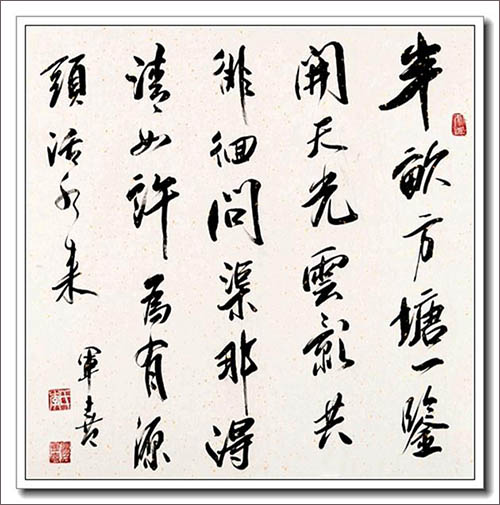 半畝方塘一鑒
開天光雲影共
徘徊問渠那得
清如許為有源
頭活水來
軍